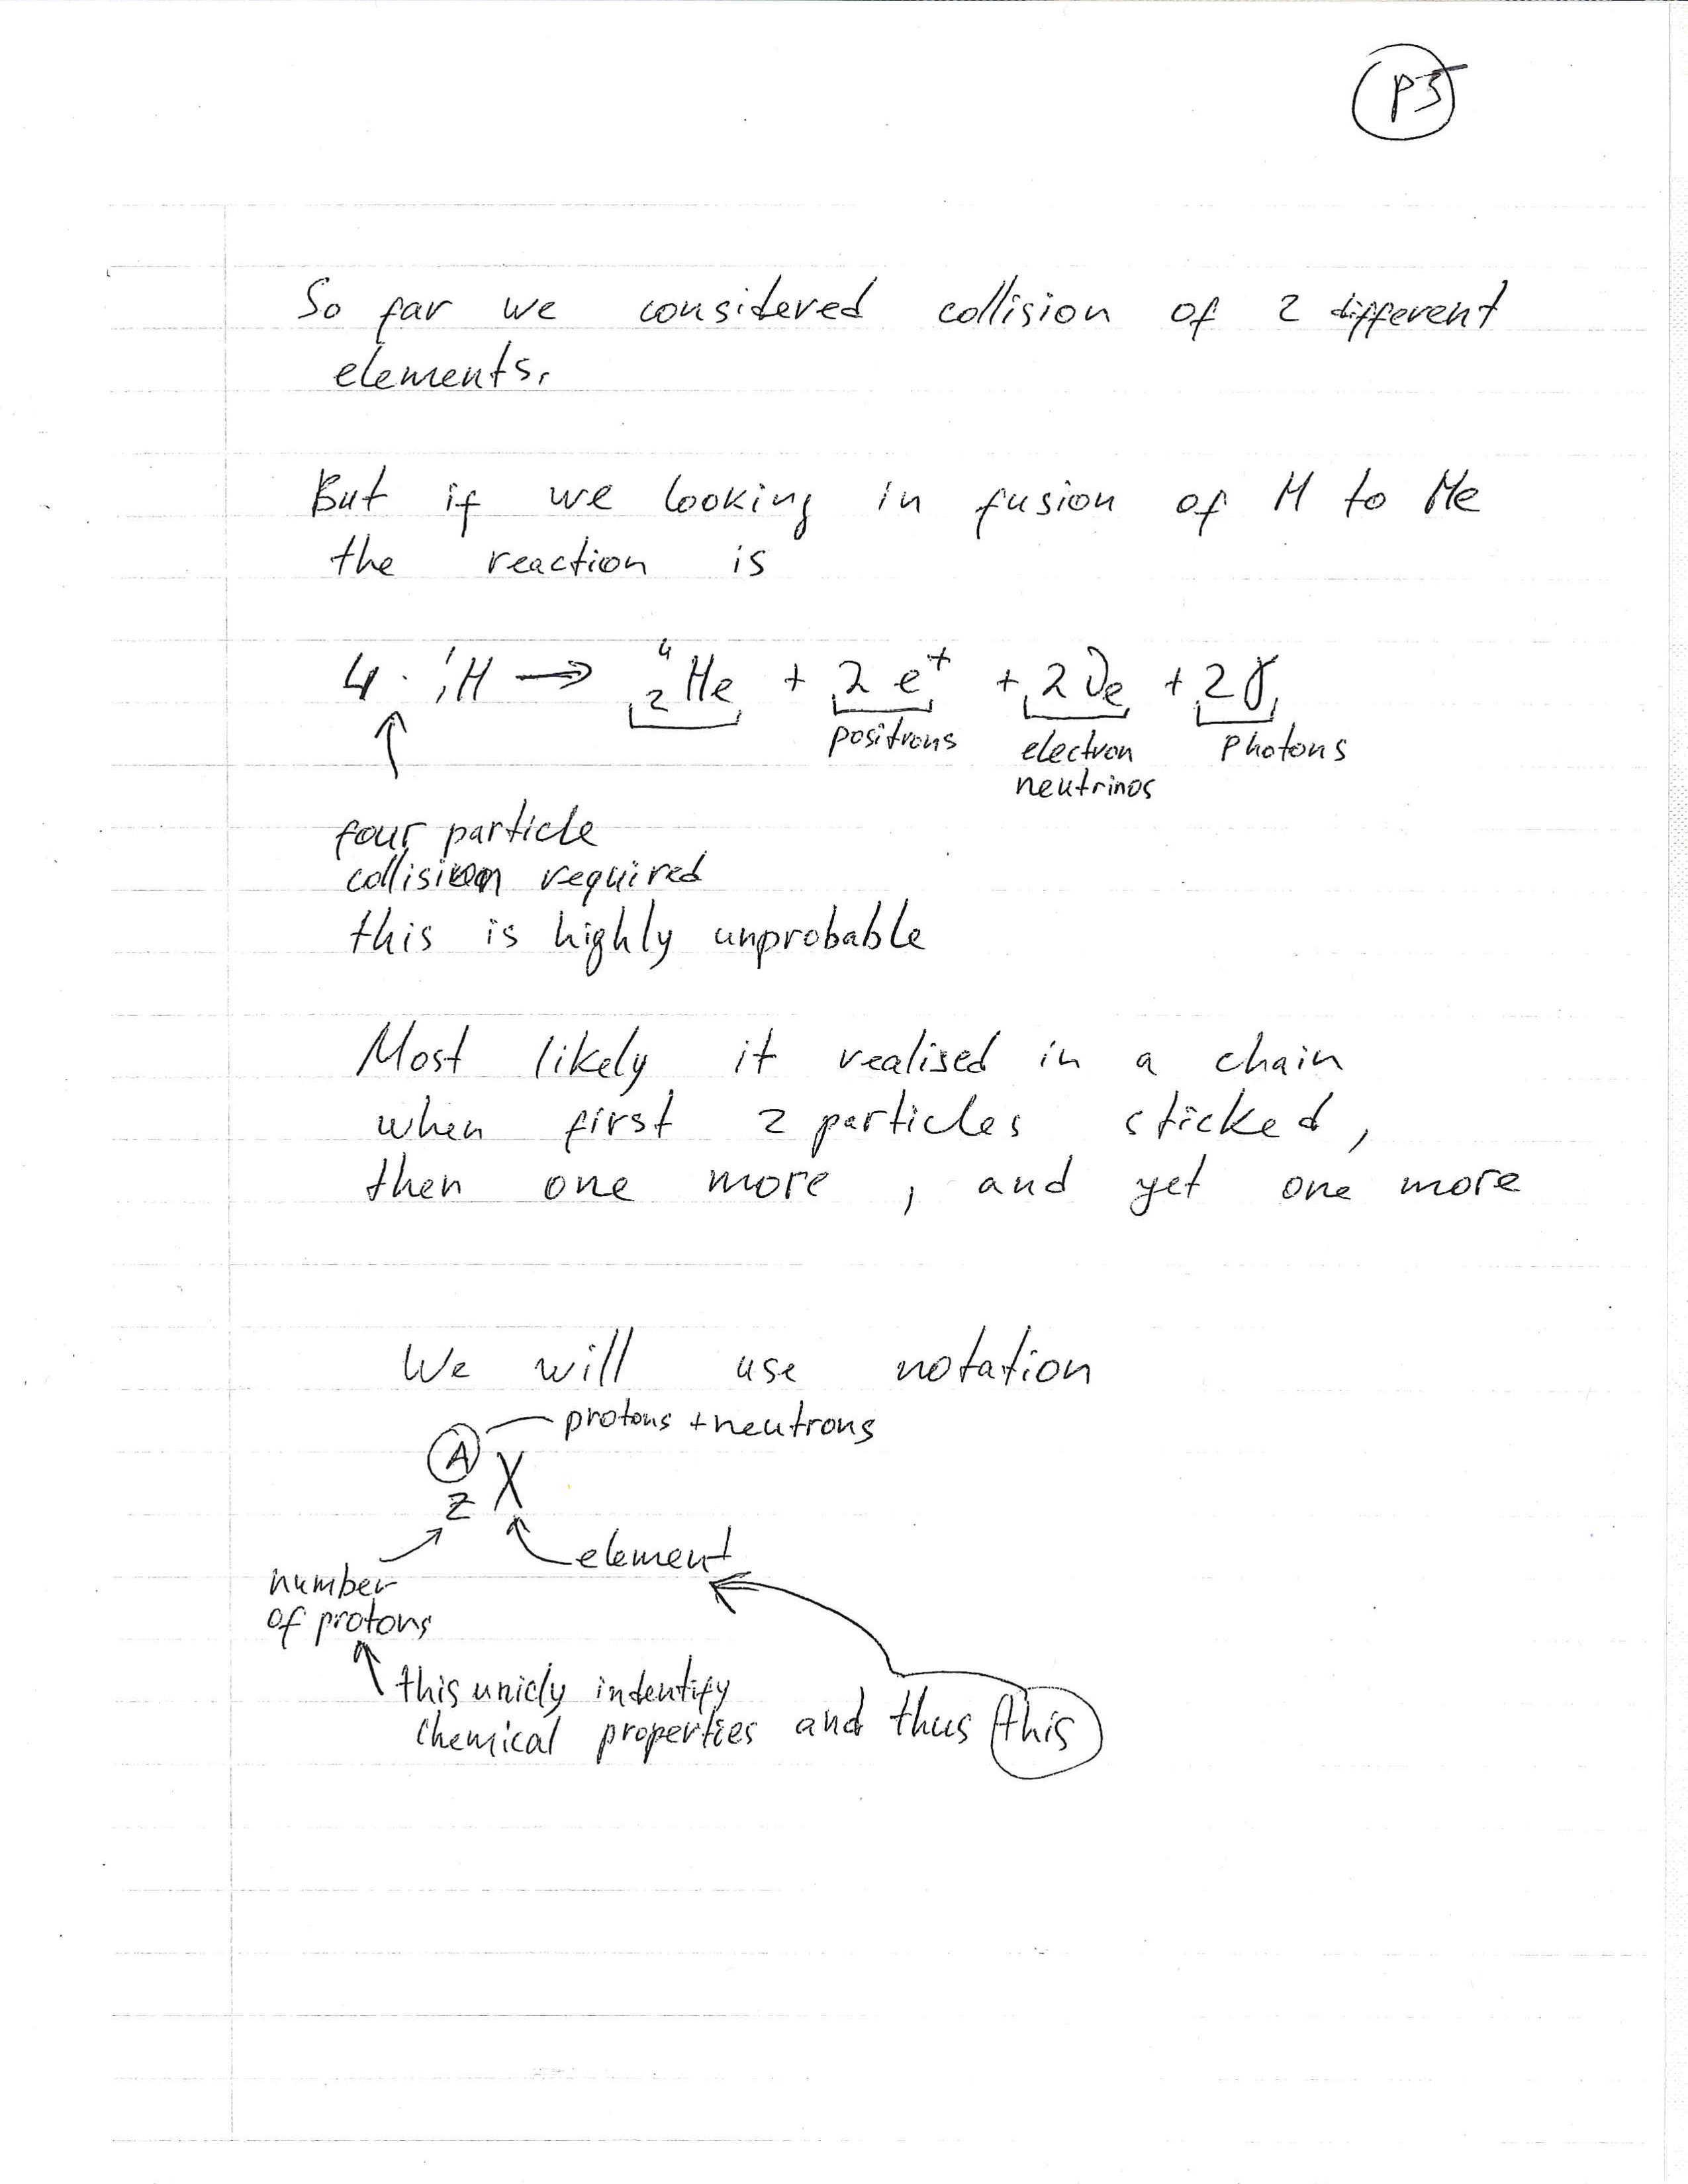 p5
So far we considered collision of 2 different
elements.
But if we looking in fusion of H to He
the reaction is
4 · ¹₁H → ⁴₂He + 2 e⁺ + 2 νe + 2γ
positrons electron Photons
neutrinos
four particle
collision required
this is highly unprobable
Most likely it realised in a chain
when first 2 particles sticked,
then one more, and yet one more
We will use notation
protons + neutrons
A
Z X
element
number
of protons
this unicly indentify
chemical properties and thus this